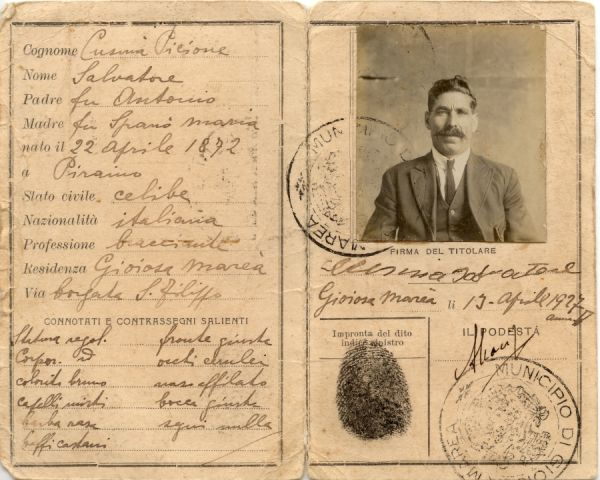 Cognome Cusmà Picione
Nome Salvatore
Padre fu Antonio
Madre fu Spanò Maria
nato il 22 aprile 1872
a Piraino
Stato civile celibe
Nazionalità italiana
Professione bracciante
Residenza Gioiosa Marea
Via borgata S. Filippo
CONNOTATI E CONTRASSEGNI SALIENTI
Statura regol. fronte giusta
Corpor. id occhi
colorito bruno naso affilato
capelli misti bocca giusta
barba rasa segni nulla
baffi castani
MUNICIPIO DI
MAREA
FIRMA DEL TITOLARE
Salvatore
Gioiosa Marea li 13 Aprile 1927
anno V
Impronta del dito
indice sinistro
IL PODESTÀ
MUNICIPIO DI GIOIOSA
MAREA